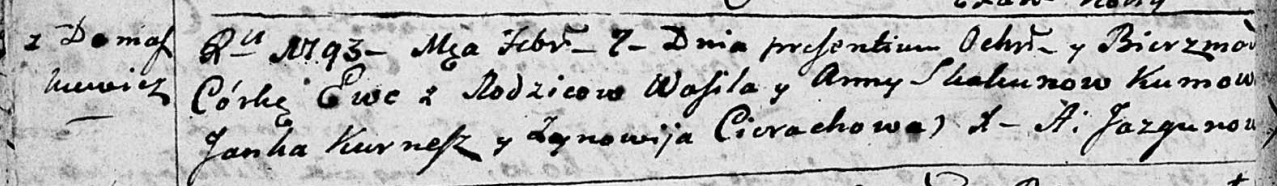 z Domaſ
kiewicz
R u 1793 – Mca Febr – 7 – Dnia presentium Ochrł – y Bierzmow
Córkę Ewe z Rodzicow Wasila y Anny Skakunow Kumow
Janka Kurnesz y Zynowija Cierachowa) X – A: Jazgunow